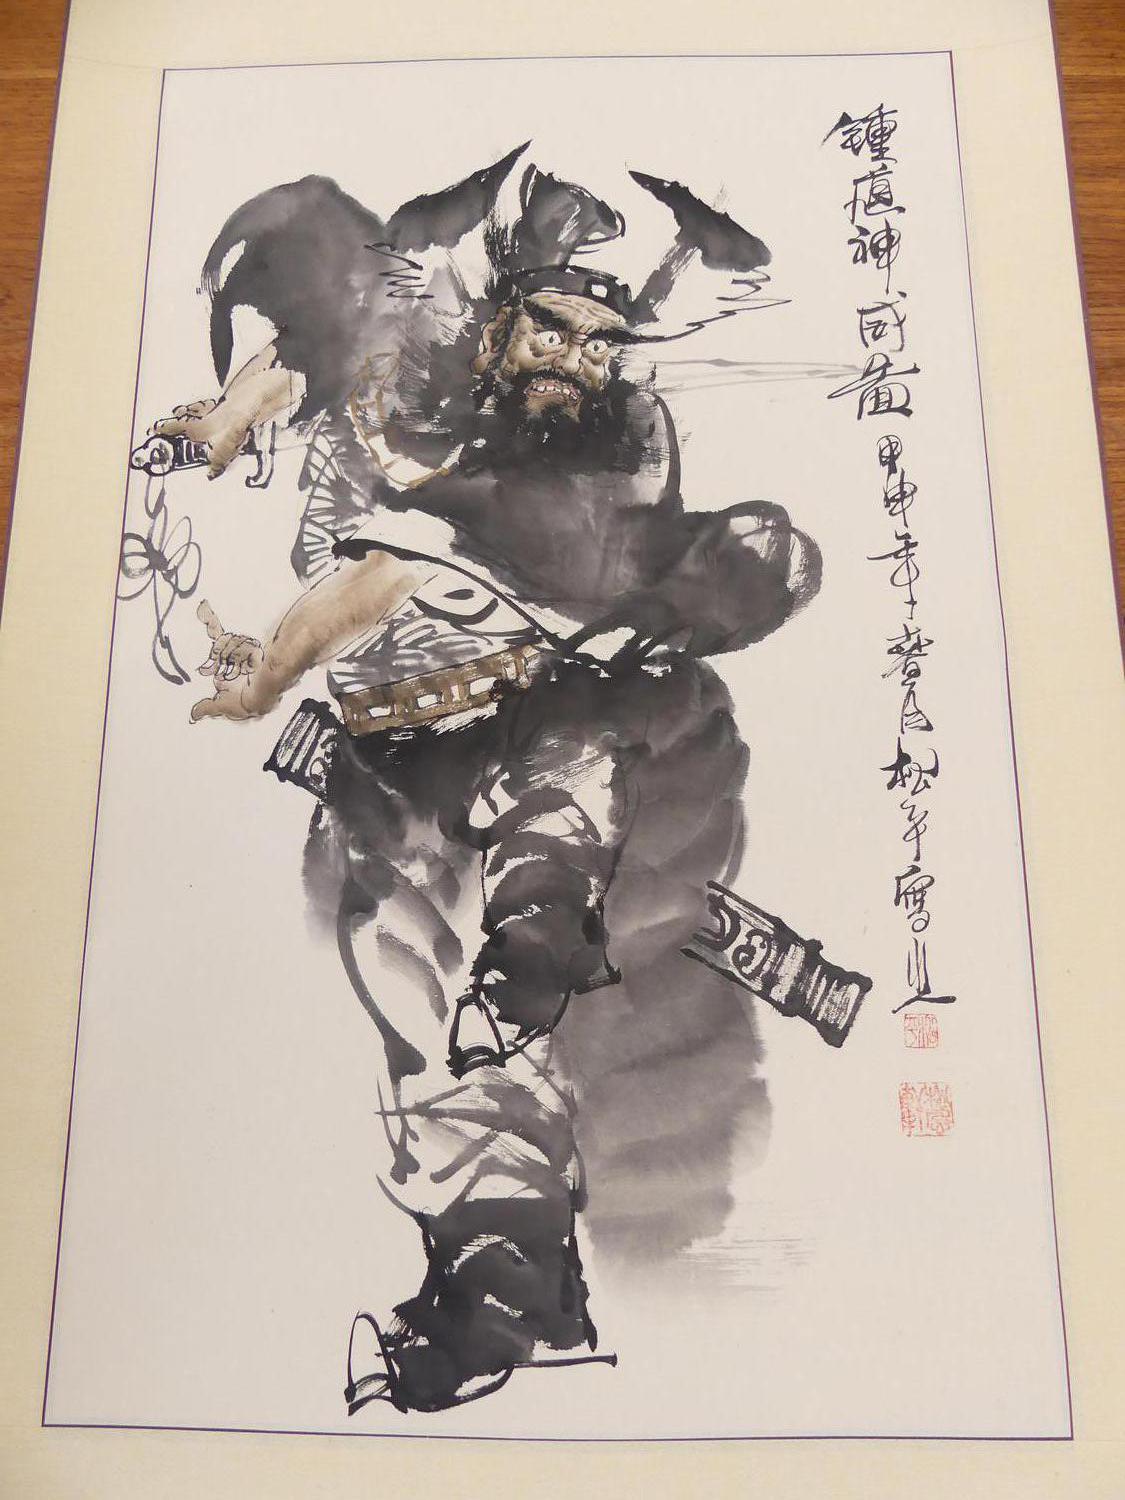 鍾馗神威圖甲申年春月松年寫